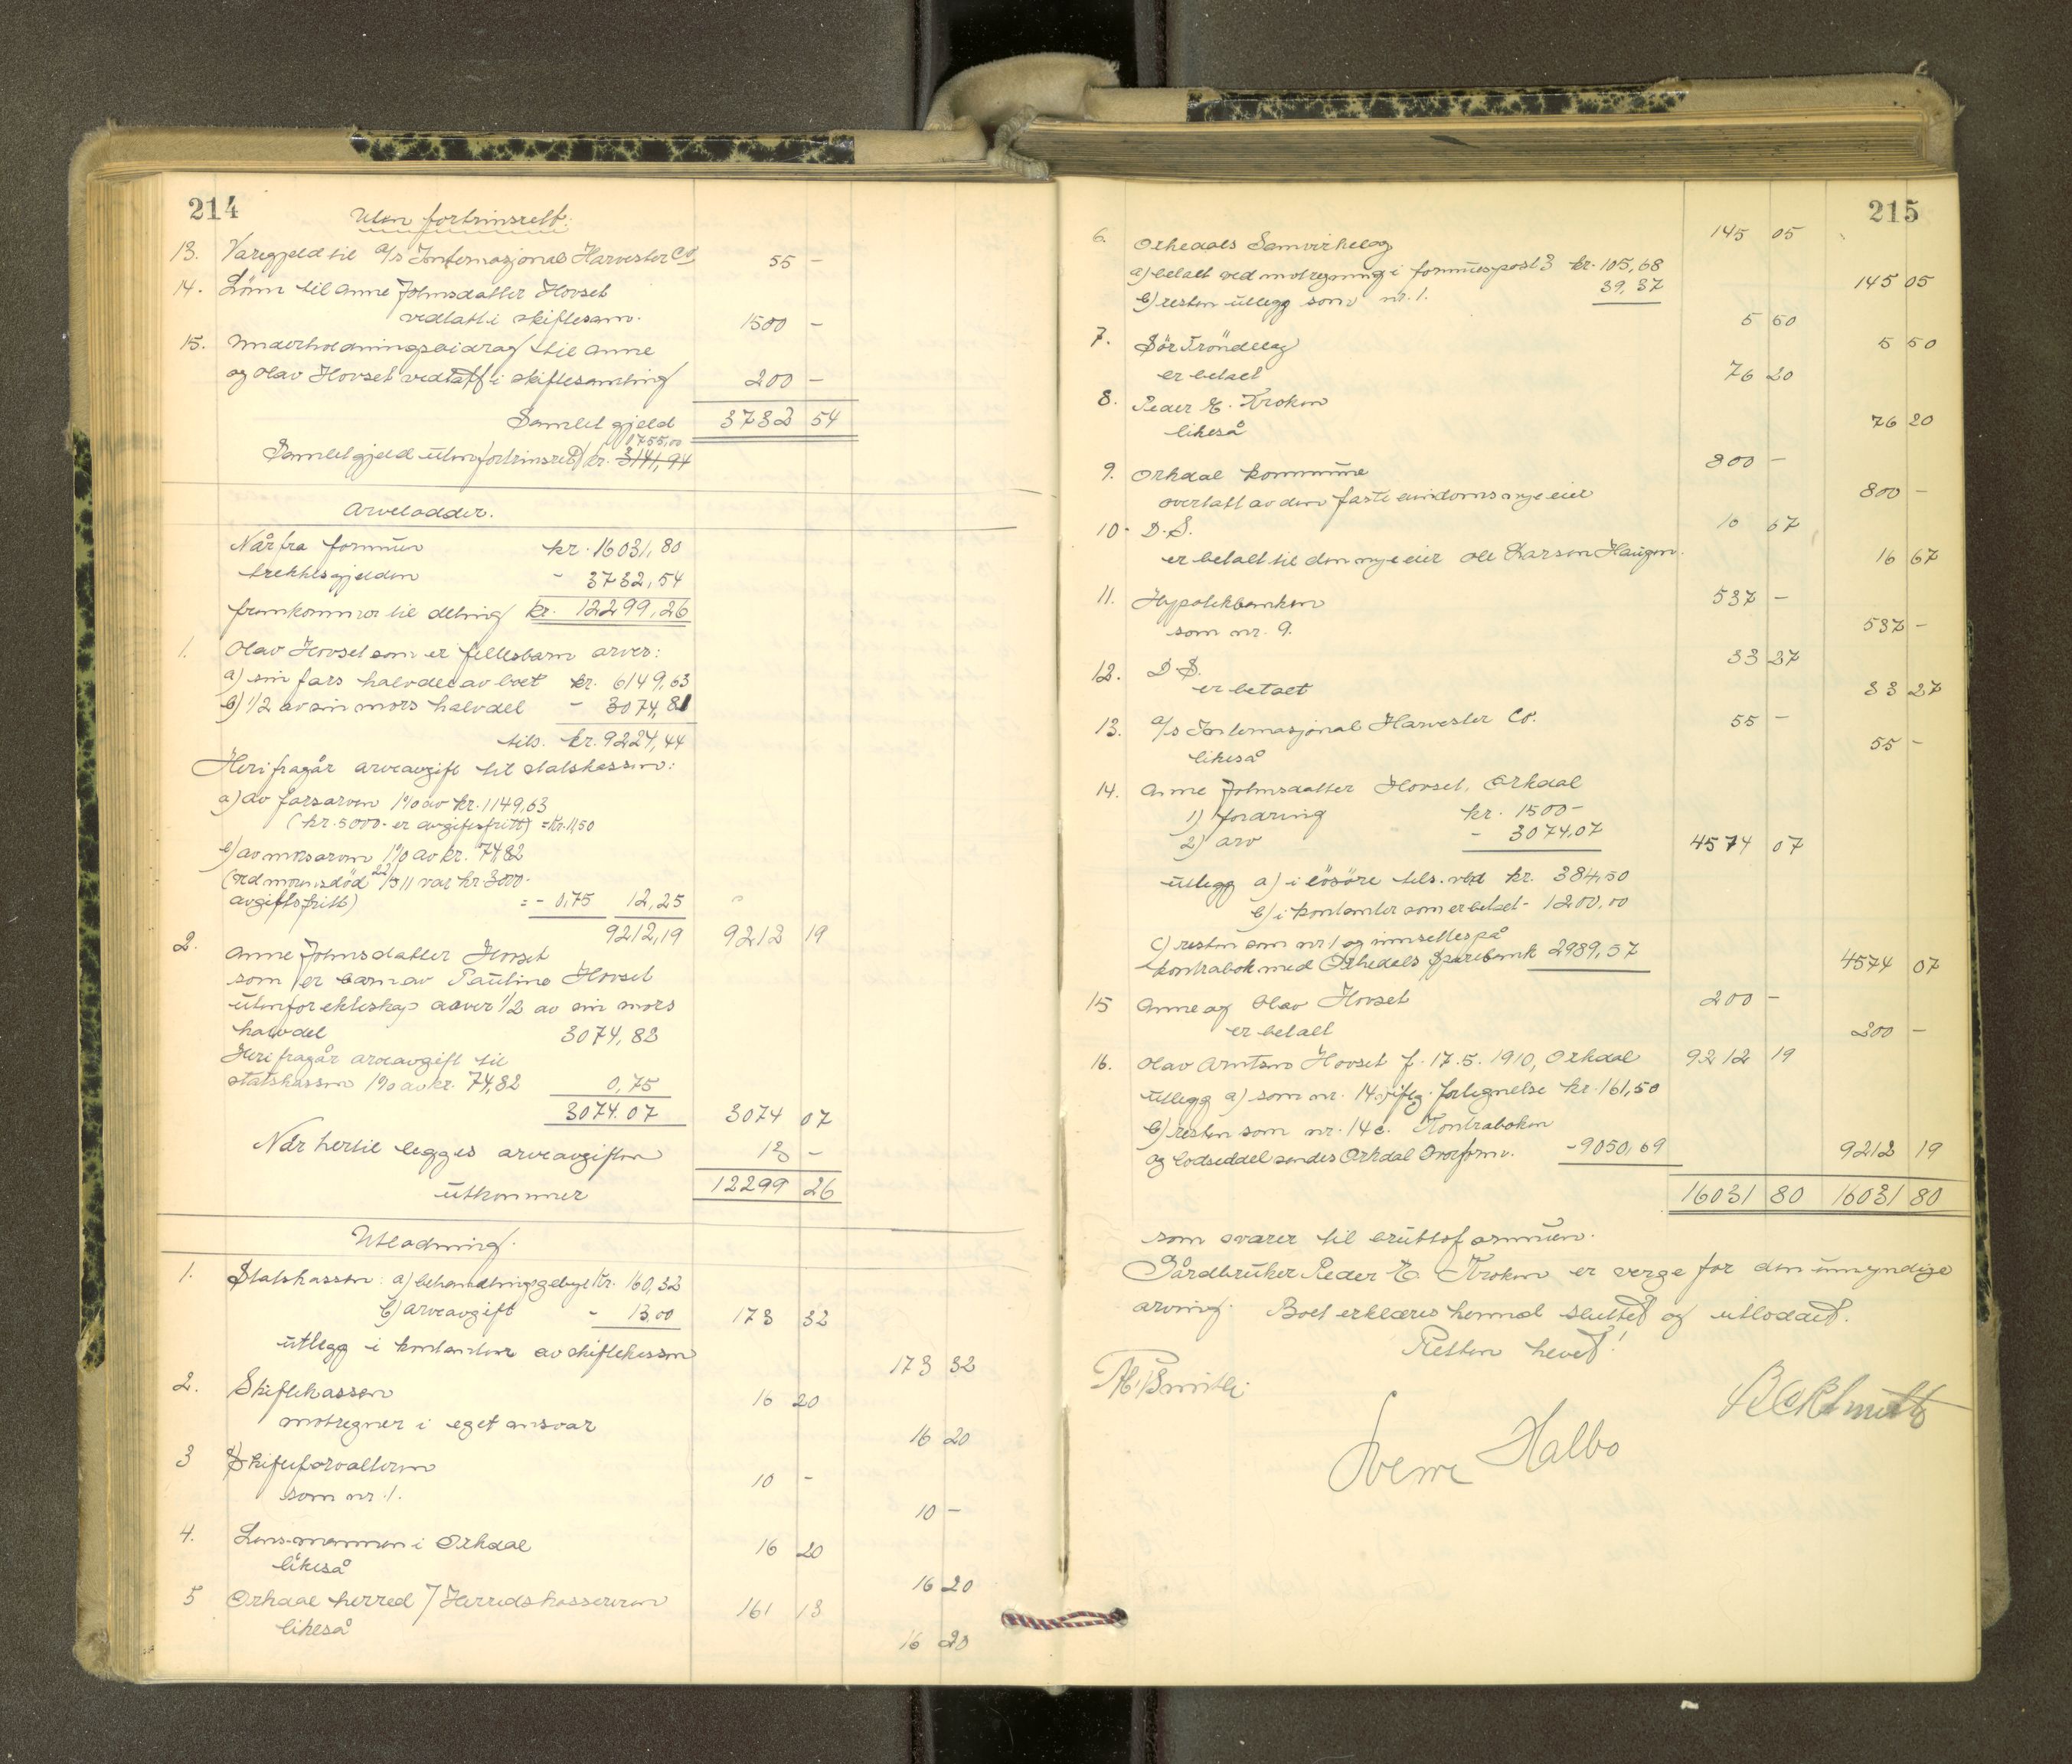 214
Uten fortrinsrett:
13. Varegjeld til A/s Internasjonal Harvester Co 55 -
14. Lönn til Anne Johnsdatter Hovset
vedtatt i skiftesam. 1500 -
15. Underholdningsbidrag til Anne
og Olav Hovset vedtatt i skiftesamling 200 -
Samlet gjeld 3732 54
1755,00
Samlet gjeld uten fortrinsrett kr. 3141,94
Arvelodder.
Når fra formuen kr. 16031,80
trekkes gjelden - 3732,54
fremkommer til deling kr. 12299,26
1. Olav Hovset som er fellesbarn arver:
a) sin fars halvdel av boet kr. 6149,63
b) 1/2 av sin mors halvdel - 3074,81
tils. kr. 9224,44
Heri fragår arveavgift til statskassen:
a) av farsarven 1% av kr. 1149,63
(kr. 5000- er avgiftsfritt) = kr. 11,50
b) av morsarven 1% av kr. 74,82
(ved morens död 22/5 11 var kr 3000-
avgiftsfritt) = - 0,75 12,25
9212,19 9212 19
2. Anne Johnsdatter Hovset
som er barn av Pauline Hovset
utenfor ekteskap arver 1/2 av sin mors
halvdel 3074,82
Heri fragår arveavgift til
statskassen 1% av kr. 74,82 0,75
3074.07 3074 07
Når hertil legges arveavgiften 13 -
utkommer 12299 26
Utlodning.
1. Statskassen: a) behandlingsgebyr kr. 160,32
b) arveavgift - 13,00 173 32
utlegg i kontanter av skiftekassen 173 32
2. Skiftekassen 16 20
motregner i eget ansvar 16 20
3 Skifteforvalteren 10 -
som nr. 1. 10 -
4. Lensmannen i Orkdal 16 20
likeså 16 20
5 Orkdal herred / Herredskassereren 161 13
likeså 16 20
215
6. Orkedals Samvirkelag 145 05
a) betalt ved motregning i formuespost 3 kr. 105,68
b) resten utlegg som nr. 1. 39,37 145 05
7. Sör Tröndelag 5 50
er betalt 5 50
8. Peder E. Kroken 76 20
likeså 76 20
9. Orkdal kommune 800 -
overtatt av den faste eiendoms nye eier 800 -
10. D.S. 16 67
er betalt til den nye eier Ole Larsen Haugen. 16 67
11. Hypotekbanken 537 -
som nr. 9. 537 -
12. D.S. 33 27
er betalt 33 27
13. A/s Internasjonal Harvester Co. 55 -
likeså 55 -
14. Anne Johnsdatter Hovset, Orkdal
1) fordring kr. 1500-
2) arv - 3074,07 4574 07
utlegg a) i lösöre tils. verd kr. 384,50
b) i kontanter som er betalt - 1200,00
c) resten som nr. 1 og innsettes på
kontrabok med Orkedals Sparebank 2989,57 4574 07
15 Anne og Olav Hovset 200 -
er betalt 200 -
16. Olav Arntsen Hovset f. 17.5.1910, Orkdal 9212 19
utlegg a) som nr. 14. iflg. fortegnelse kr. 161,50
b) resten som nr. 14 c. Kontraboken
og lodseddel sendes Orkdal Overform. - 9050,69 9212 19
16031 80 16031 80
som svarer til bruttoformuen.
Gårdbruker Peder E. Kroken er verge for den umyndige
arving. Boet erklæres hermed sluttet og utloddet.
Retten hevet!
Sverre Halbo